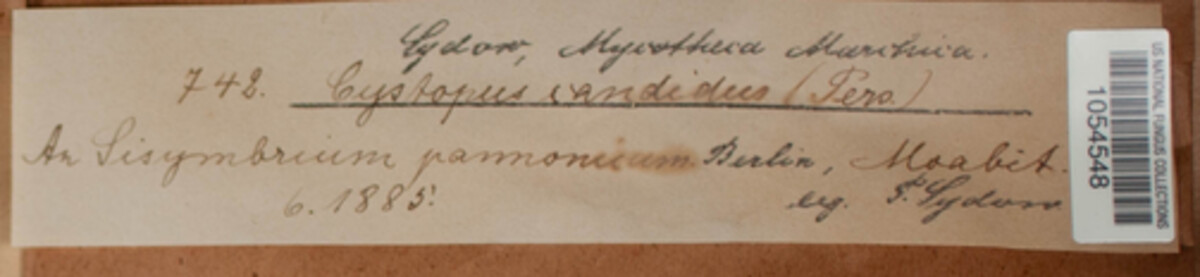 Sydow, Mycotheca Marchica.
742. Cystopus candidus (Pers.)
An Sisymbrium pannonicum Berlin, Moabit.
6. 1885. leg. P. Sydow
US NATIONAL FUNGUS COLLECTIONS
1054548